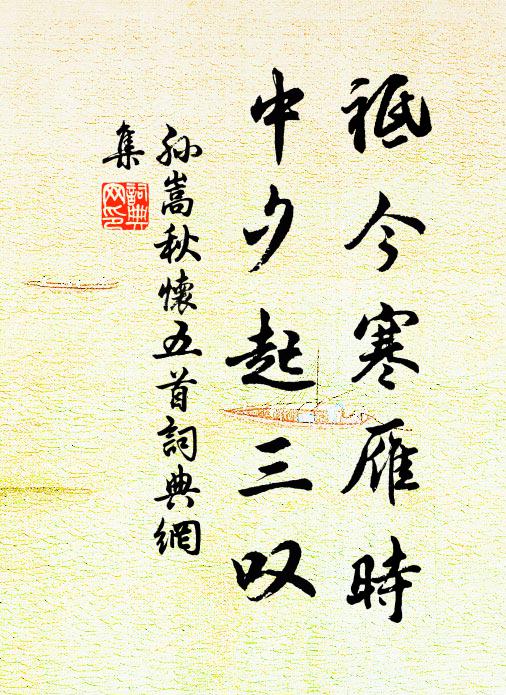 祗今寒雁時
中夕起三叹
孙嵩秋懷五首詞典網
集
詞典
网印